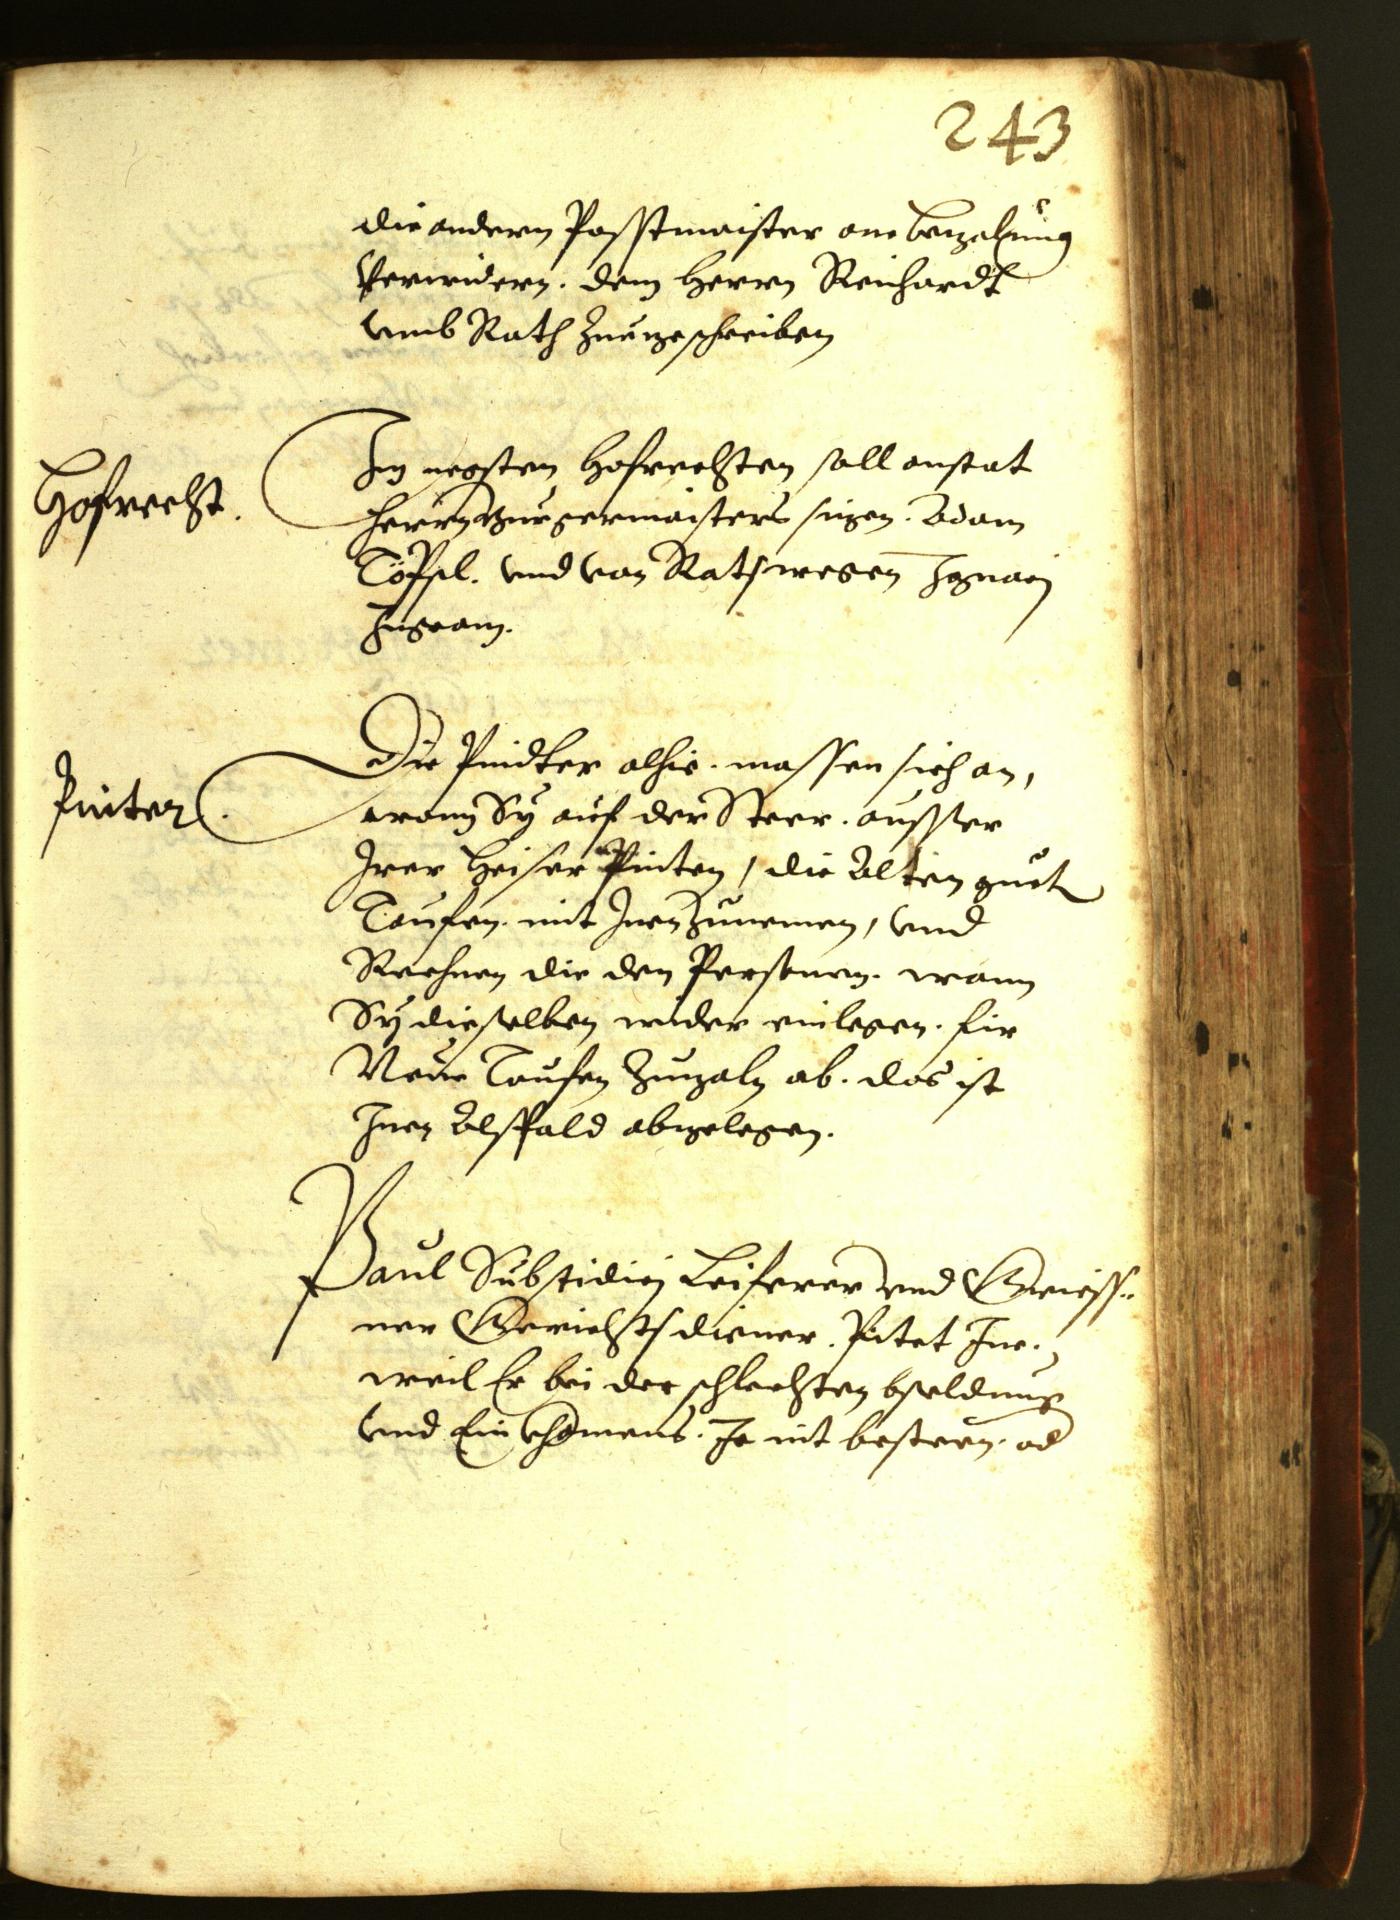 243
die andern Posstmaister one bezalung
Verwidern. dem Herrn Reichardt
vmb Rath Zuegeschreiben
Hofrecht.
Im negsten Hofrechten soll anstat
Herrn Burgermaisters sizen. Adam
Töpsl. vnd von Ratswegen
Ingram.
Pinter.
Die Pindter alhie. massen sich an,
wann Sy auf der Steer. ausser
Irer Heiser Pinten, die Alten guet
Taufen. mit Inen Zunemen, vnd
Rechnen die den Personen. wann
Sy dieselben wider einlegen. fir
Neue Taufen Zuezaln ab. das ist
Inen Alspald abgelegen.
Paul Substidiej Leiferer vnd Griess-
ner Gerichtsdiener. Pitet Ine.
weil Er bei der schlechten bsoldung
vnd Einkhomens. Je nit besteen. od